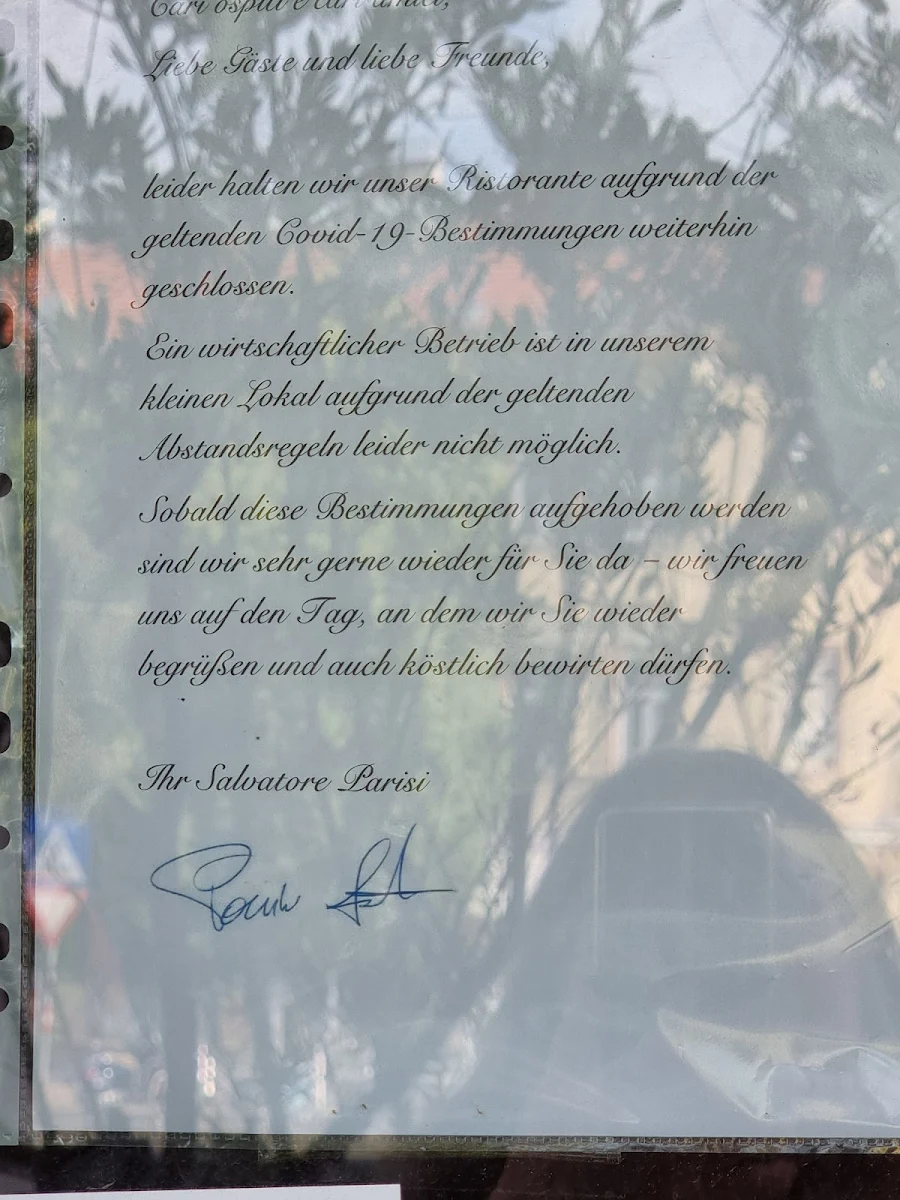 Cari ospiti e cari amici,
Liebe Gäste und liebe Freunde,
leider halten wir unser Ristorante aufgrund der
geltenden Covid-19-Bestimmungen weiterhin
geschlossen.
Ein wirtschaftlicher Betrieb ist in unserem
kleinen Lokal aufgrund der geltenden
Abstandsregeln leider nicht möglich.
Sobald diese Bestimmungen aufgehoben werden
sind wir sehr gerne wieder für Sie da – wir freuen
uns auf den Tag, an dem wir Sie wieder
begrüßen und auch köstlich bewirten dürfen.
Ihr Salvatore Parisi